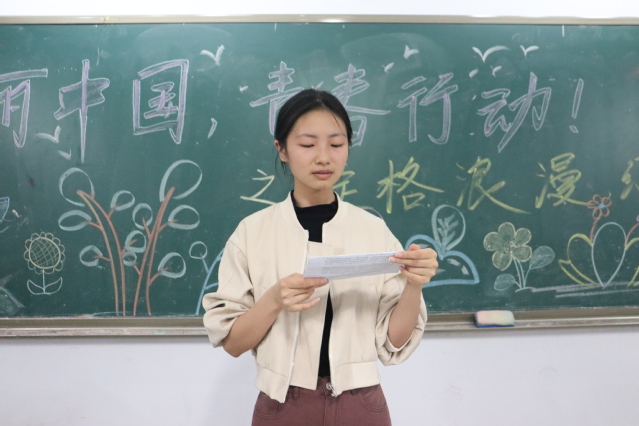 丽中国，青春行动！
格浪漫